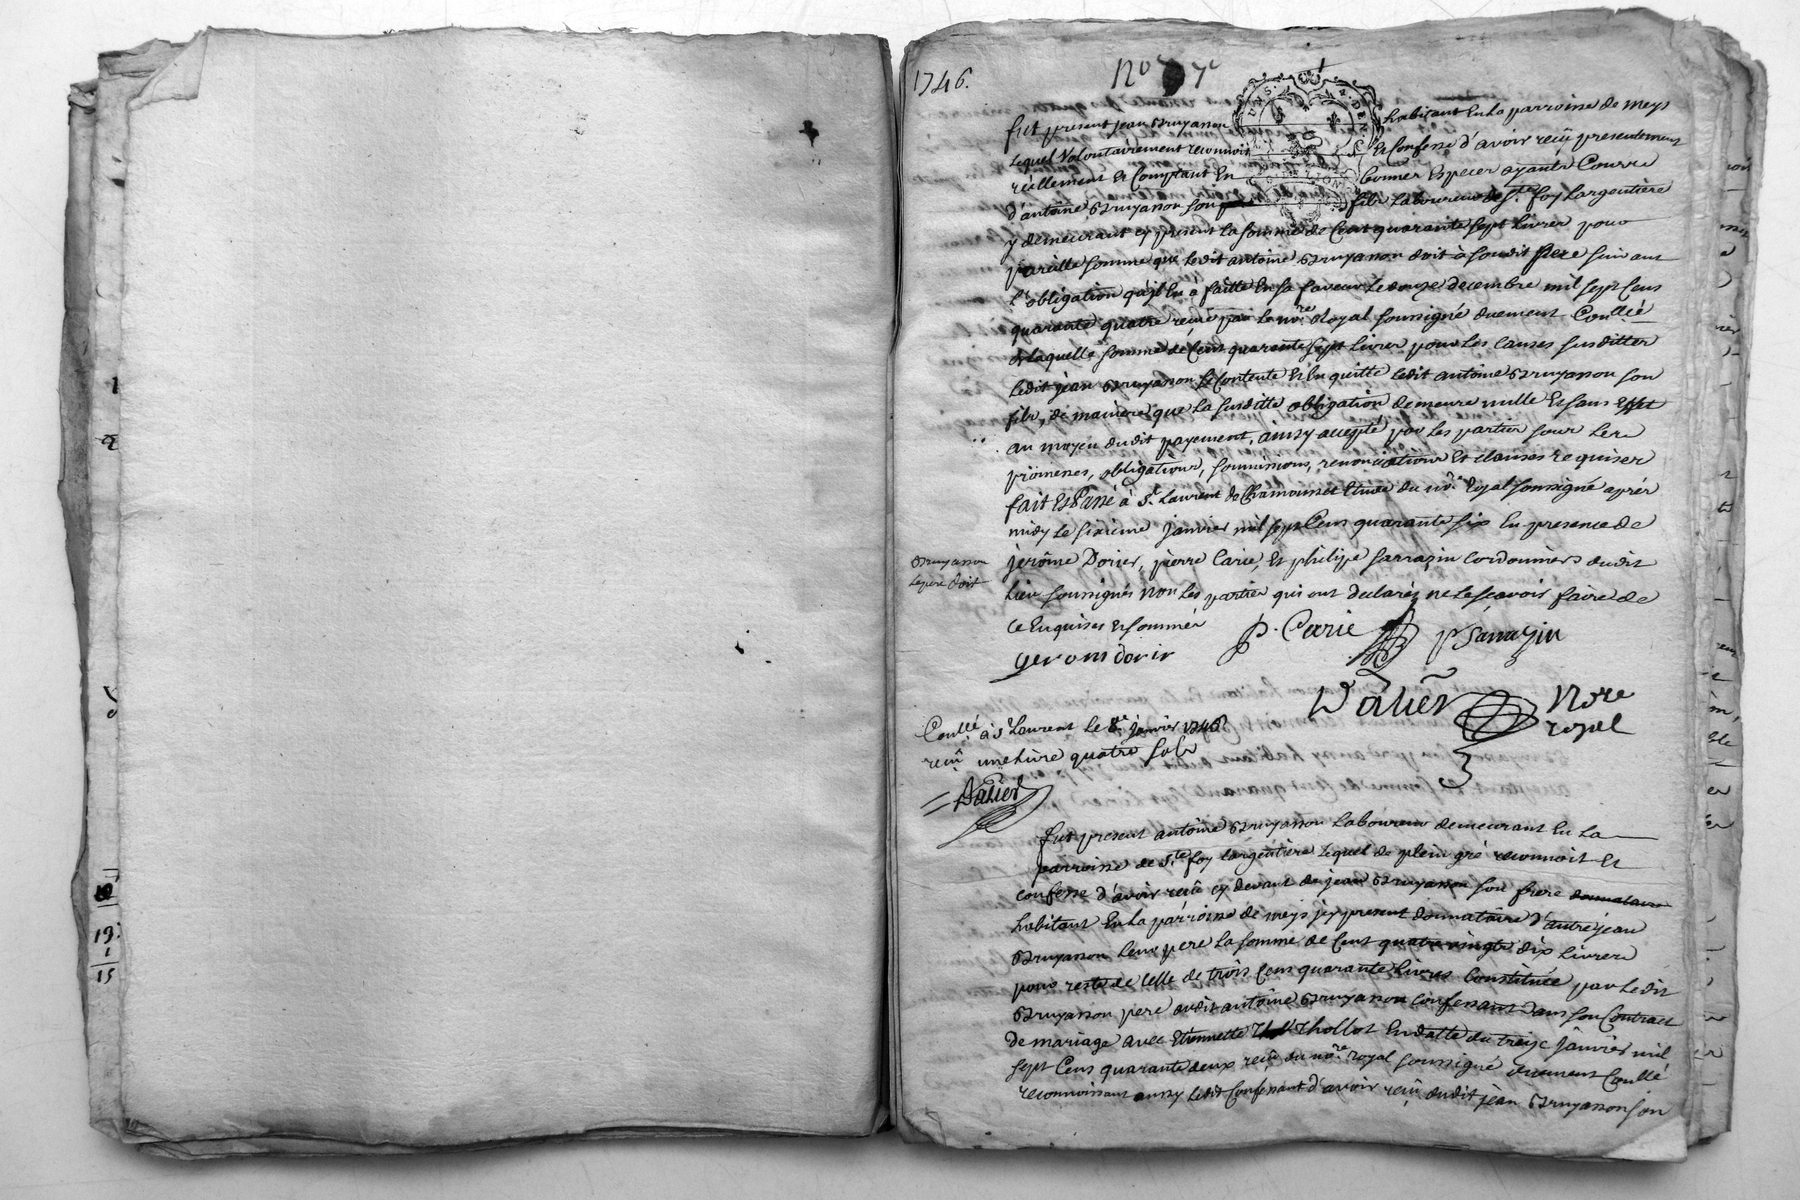 1746.
fut present jean Bruyasson habitant En la parroisse de meys
Lequel Volontairement reconnoit Et Confesse d'avoir reçû presentement
réellement Et Comptant En bonnes Especes ayants Cours
d'antoine Bruyasson son fils Laboureur de Ste foy Largentiere
y demeurant cy present La somme de Cent quarante sept Livres pour
pareille somme que Ledit antoine Bruyasson doit à soudit Pere suivant
L'obligation qu'il En à faitte En sa faveur Le douze decembre mil sept Cens
quarante quatre reçûe par Le nore Royal soussigné duement Conllée
de Laquelle somme de Cent quarante sept Livres pour Les causes susdittes
Ledit jean Bruyasson se Contente Et En quitte Ledit antoine Bruyasson son
fils, de maniere que La susditte obligation demeure nulle Et sans Effet
au moyen dudit payement, ainsy accepté par Les parties sous Leurs
promesses, obligations, soumissions, renonciations Et clauses requises
fait Et Passé à St Laurent de Chamousset Etude du nore Royal soussigné après
midy Le sixieme janvier mil sept Cens quarante six En presence de
jerôme Dorier, pierre Carie, Et philipe sarrazin cordonniers dudit
Bruyasson
Le pere doit
Lieu soussignés non Les parties qui ont declarés ne Le sçavoir faire de
Ce Enquises Et sommés
P. Carie P Sarrazin
gerom dorir
Dalier Nore
royal
Conllé à St Laurent Le 8e janvier 1746
reçû une Livre quatre sols
Dalier
fut present antoine Bruyasson Laboureur demeurant En La
parroisse de Ste foy Largentiere Lequel de plein gré reconnoit Et
confesse d'avoir reçû cy devant de jean Bruyasson son frere donnataire
habitant En La parroisse de meys jcy present donnataire d'autre jean
Bruyasson Leur pere La somme de Cent quatre vingts dix Livres
pour reste de Celle de trois Cens quarante Livres Constituée par Ledit
Bruyasson pere audit antoine Bruyasson confessant dans son Contract
de mariage avec Etiennette Thollot En datte du treize janvier mil
sept Cens quarante deux reçû du nore royal soussigné duement Conllé
reconnoissant aussy Ledit Confessant d'avoir reçû dudit jean Bruyasson son